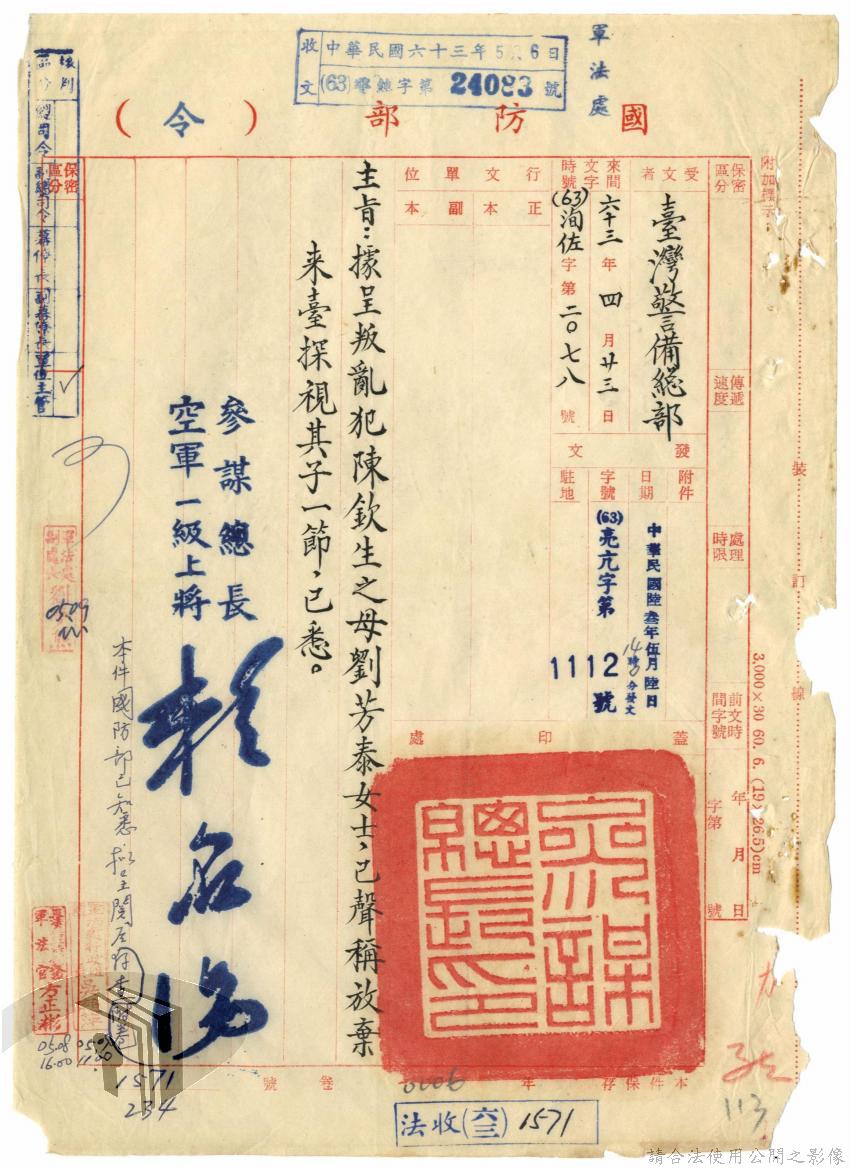 軍法處
收文 中華民國六十三年5月6日
(63)字第 24083 號
國防部(令)
附加標示
保密區分
傳遞速度
處理時限
前文時間字號 年 月 日 字第 號
受文者 臺灣警備總部
來文時間字號 六十三年四月廿三日
(63)洵佐字第二〇七八號
行文單位 正本 副本
發文 附件 日期 字號 駐地
中華民國陸叁年伍月陸日
14時 分發文
(63)亮亢字第1112號
蓋印處
主旨:據呈叛亂犯陳欽生之母劉芳泰女士,已聲稱放棄
來臺探視其子一節,已悉。
參謀總長
空軍一級上將
賴名湯
參謀總長印
保密區分
總司令
副總司令
參謀長
副參謀長
單位主管
軍法處
0509
本件國防部已知悉
軍法官方正彬
0508
16.00
1571
234
本件保存 年
號
0006
法收(六三)1571
裝訂線
3,000×30 60. 6. (19×26.5)cm
113
請合法使用公開之影像